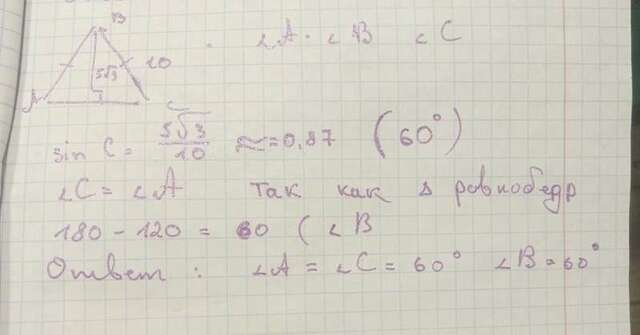 B
∠A . ∠B ∠C
10
5√3
A
C
sin C = 5√3/10 ≈ = 0,87 (60°)
∠C = ∠A так как Δ равнобедр
180 - 120 = 60 (∠B
Ответ : ∠A = ∠C = 60° ∠B = 60°